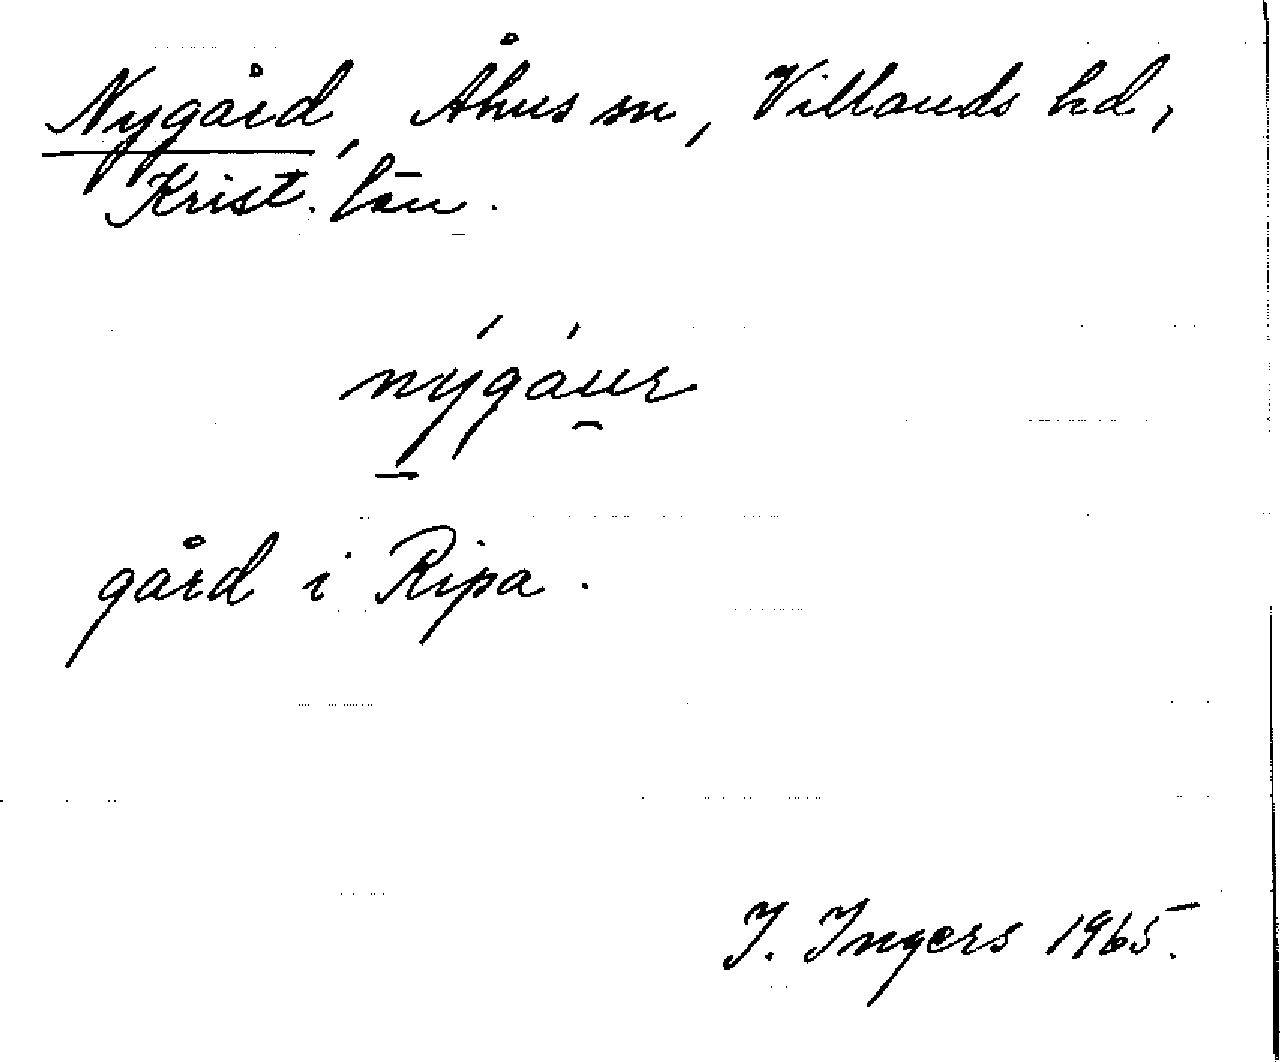 Nygård, Åhus sn, Villands hd,
Krist. län.
ný̱gáu̯r
gård i Ripa.
I. Ingers 1965.